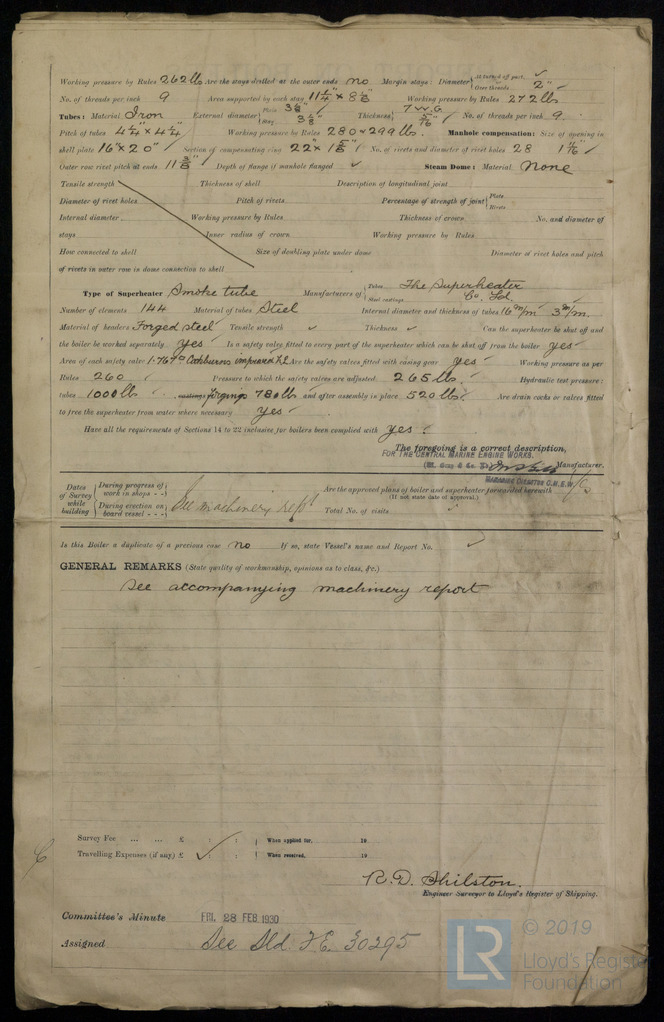 Working pressure by Rules 262 lb Are the stays drilled at the outer ends no Margin stays: Diameter { At turned off part, ✓ or Over threads 2"
No. of threads per inch 9 Area supported by each stay 11¼" × 8⅜" Working pressure by Rules 272 lbs
Tubes: Material Iron External diameter { Plain 3¼" Stay 3⅛" Thickness { 7 W.G. 5/16" No. of threads per inch 9
Pitch of tubes 4¼" × 4¼" Working pressure by Rules 280 & 299 lbs. Manhole compensation: Size of opening in
shell plate 16" × 20" Section of compensating ring 22" × No. of rivets and diameter of rivet holes 28 1 1/16"
Outer row rivet pitch at ends 11⅜" Depth of flange if manhole flanged ✓ Steam Dome: Material None
Tensile strength Thickness of shell Description of longitudinal joint
Diameter of rivet holes Pitch of rivets Percentage of strength of joint { Plate Rivets
Internal diameter Working pressure by Rules Thickness of crown No. and diameter of
stays Inner radius of crown Working pressure by Rules
How connected to shell Size of doubling plate under dome Diameter of rivet holes and pitch
of rivets in outer row in dome connection to shell
Type of Superheater Smoke tube Manufacturers of { Tubes Steel castings The Superheater Co. Ld.
Number of elements 144 Material of tubes Steel Internal diameter and thickness of tubes 16 m/m 3 m/m.
Material of headers Forged steel Tensile strength ✓ Thickness ✓ Can the superheater be shut off and
the boiler be worked separately yes Is a safety valve fitted to every part of the superheater which can be shut off from the boiler yes
Area of each safety valve 1.767 Cockburns improved H.L Are the safety valves fitted with easing gear yes Working pressure as per
Rules 260 Pressure to which the safety valves are adjusted 265 lbs. Hydraulic test pressure:
tubes 1000 lbs castings forgings 780 lbs and after assembly in place 520 lbs. Are drain cocks or valves fitted
to free the superheater from water where necessary yes
Have all the requirements of Sections 14 to 22 inclusive for boilers been complied with yes
The foregoing is a correct description,
FOR THE CENTRAL MARINE ENGINE WORKS.
(Wm. Gray & Co. Ld.) Manufacturer.
MANAGING DIRECTOR C.M.E.W.
Dates of Survey while building { During progress of work in shops - - During erection on board vessel - - - See machinery rept Are the approved plans of boiler and superheater forwarded herewith
(If not state date of approval.)
Total No. of visits ✓
Is this Boiler a duplicate of a previous case no If so, state Vessel's name and Report No. ✓
GENERAL REMARKS (State quality of workmanship, opinions as to class, &c.)
See accompanying machinery report
Survey Fee ... ... £ : : { When applied for, 19
Travelling Expenses (if any) £ ✓ : : { When received, 19
R. D. Shilston.
Engineer Surveyor to Lloyd's Register of Shipping.
Committee's Minute FRI. 28 FEB 1930
Assigned See Sld. F.E. 30295
LR
© 2019
Lloyd's Register
Foundation